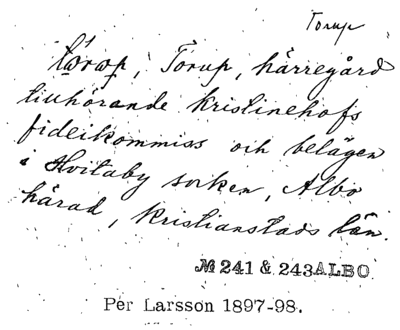 Torup
tórop, Torup, härregård
tillhörande Kristinehofs
fideikommiss och belägen
i Hvitaby socken, Albo
härad, Kristianstads län.
M 241 & 243 ALBO
Per Larsson 1897-98.